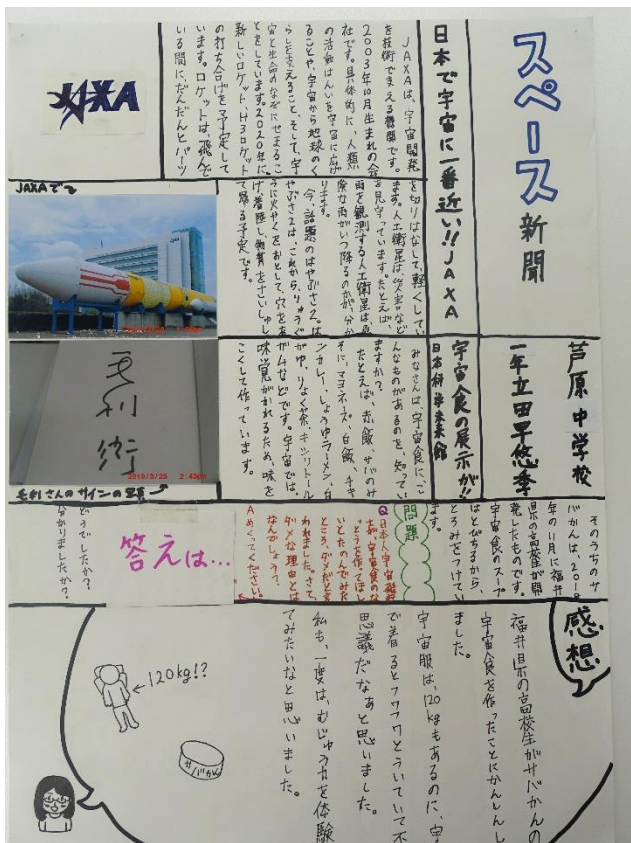 スペース新聞
芦原中学校
一年立田早悠季
日本で宇宙に一番近い!!JAXA
JAXAは、宇宙開発
を技術で支える機関です。
2003年10月生まれの会
社です。具体的に、人類
の活動はんいを宇宙に広げ
ることや、宇宙から地球のく
らしを支えること、そして、宇
宙と生命のなぞにせまるこ
とをしています。2020年に
新しいロケット、H3ロケット
の打ち合げを予定して
います。ロケットは、飛んで
いる間に、だんだんとパーツ
を切りはなして、軽くしてい
ます。人工衛星は、災害など
を見守っています。たとえば、
雨を観測する人工衛星は、危
険な雨がいつ降るのかが、分か
ります。
今、話題のはやぶさ2。は
やぶさ2は、これから、りゅうぐ
うに火やくをおとして、穴をあ
け着陸し、物質をさいしゅし
て帰る予定です。
JAXA
JAXAでで
宇宙食の展示が!!
日本科学未来館
みなさんは、宇宙食に、ど
んなものがあるのを、知ってい
ますか?
たとえば、赤飯、サバのみ
そに、マヨネーズ、白飯、チキ
ンカレー、しょうゆラーメン、白
がゆ、りょく茶、キシリトール
ガムなどです。宇宙では、
味覚がかわるため、味を
こくして作っています。
毛利衛
2019/3/25 2:43pm
毛利さんのサインの写真
そのうちのサ
バかんは、201
年の11月に福井
県の高校生が開
発したものです。
宇宙食のスープ
はとびちるから、
とろみをつけてい
ます。
問題
Q 日本人宇宙飛
ダメな理由とは
なんでしょう?
A めくってください。
答えは…
どうでしたか?
分かりましたか?
感想
福井県の高校生がサバかんの
宇宙食を作ったことにかんしんし
ました。
宇宙服は、120kgもあるのに、宇
で着るとフワフワとういていて不
思議だなぁと思いました。
私も、一度は、むじゅう力を体験
してみたいなと思いました。
120kg!?
サバかん